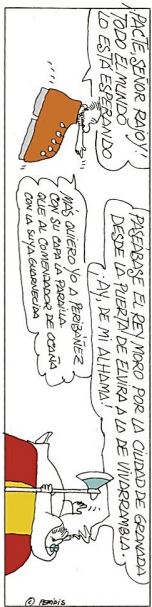 ¡PACTE, SEÑOR RAJOY!
TODO EL MUNDO
LO ESTÁ ESPERANDO
PASEÁBASE EL REY MORO POR LA CIUDAD DE GRANADA
DESDE LA PUERTA DE ELVIRA A LA DE VIVARRAMBLA.
¡AY, DE MI ALHAMA!
MÁS QUIERO YO A PERIBÁÑEZ
CON SU CAPA LA PARDILLA
QUE AL COMENDADOR DE OCAÑA
CON LA SUYA GUARNECIDA
© PERIDIS